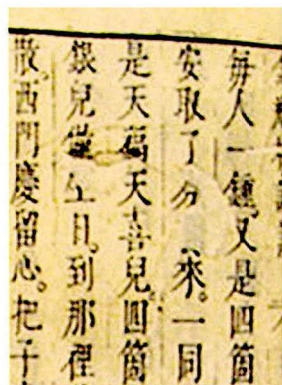 每人一鍾又是四箇
安取了分 來。一同
是天福天喜兒。四箇
銀兒做生日。到那裡
散。西門慶留心。把子